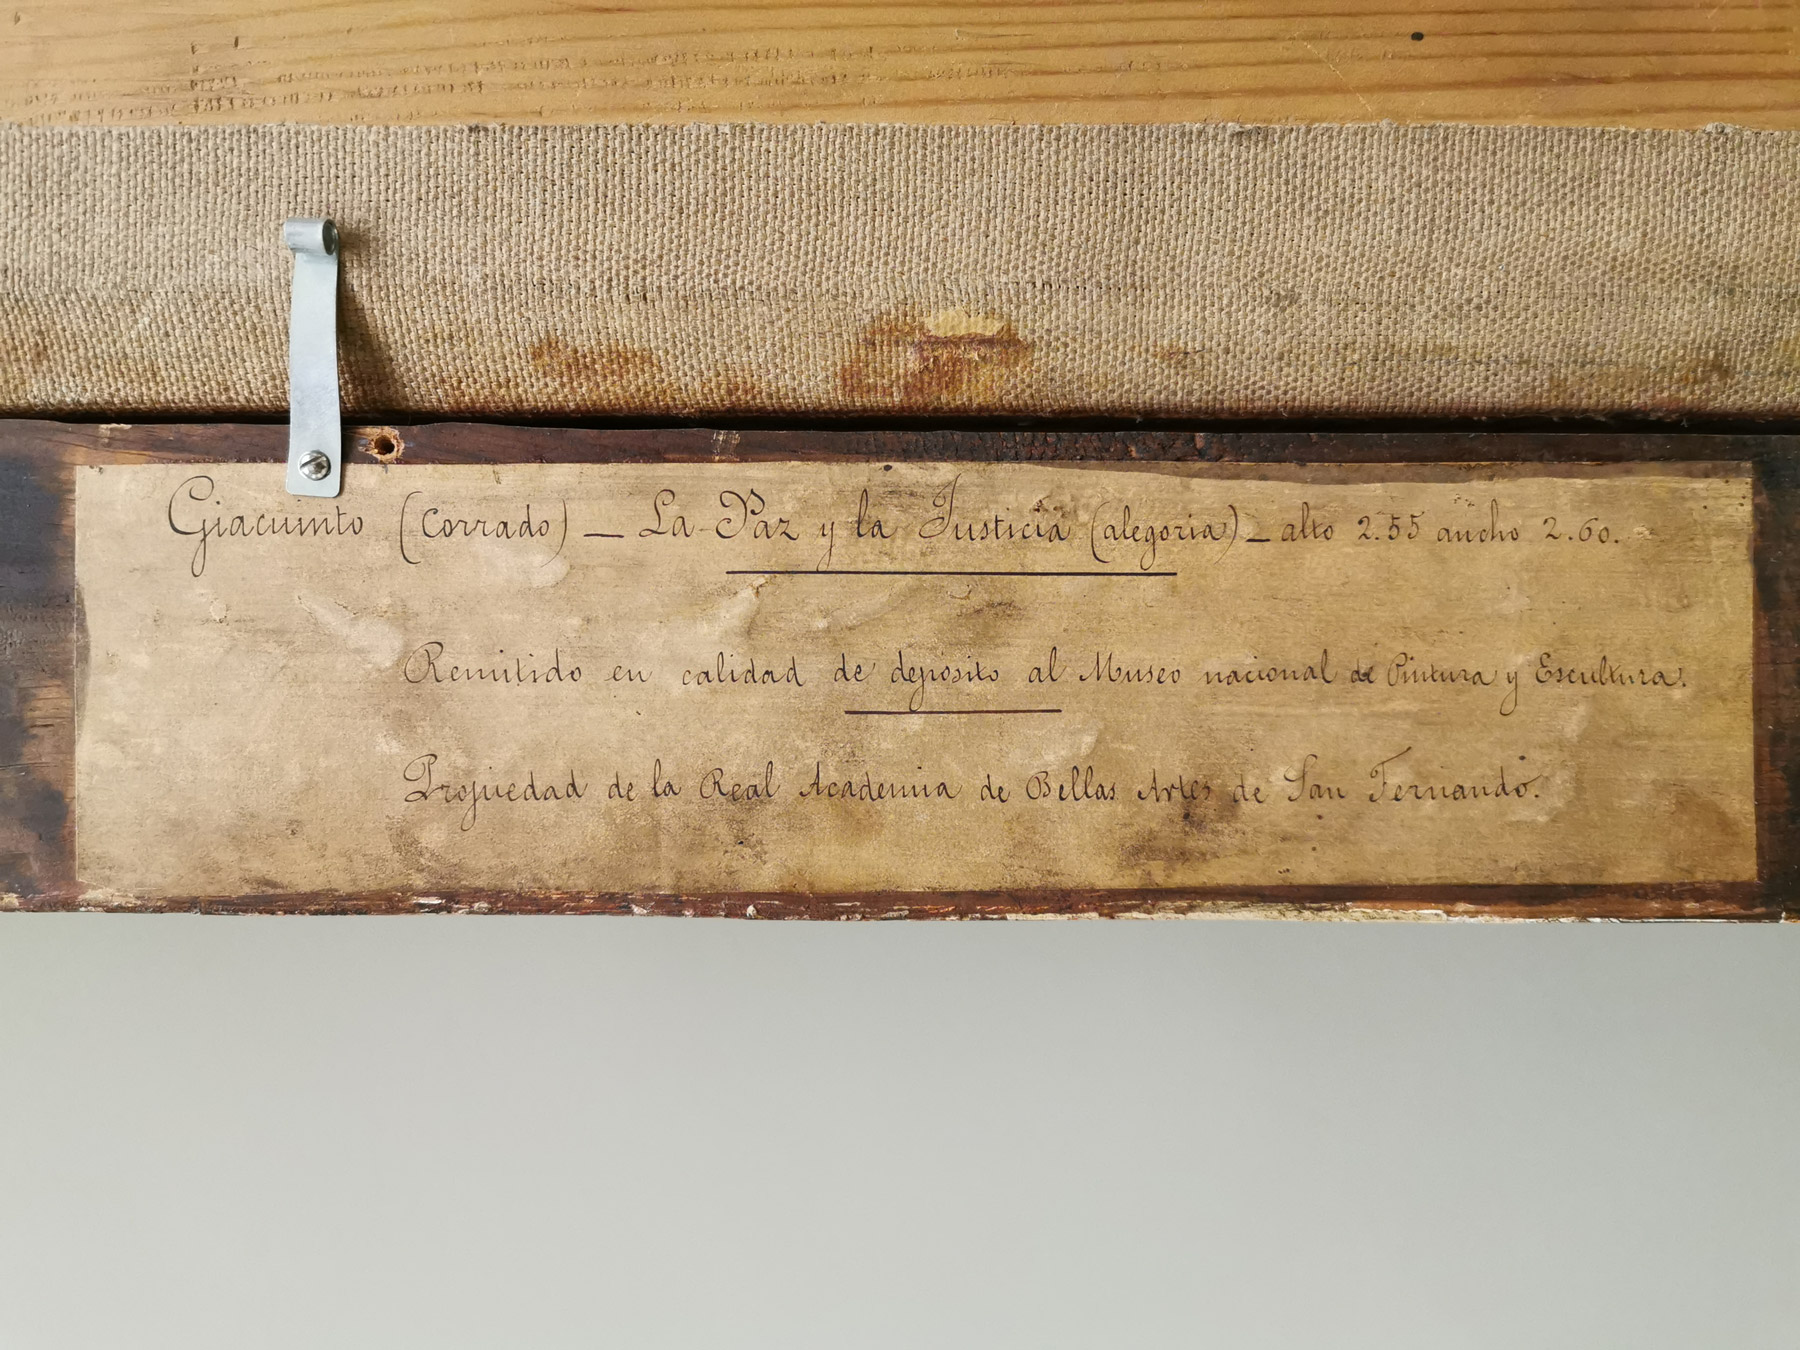 Giacuinto (Corrado) — La Paz y la Justicia (alegoria) — alto 2.55 ancho 2.60.
Remitido en calidad de depósito al Museo nacional de Pintura y Escultura.
Propiedad de la Real Academia de Bellas Artes de San Fernando.